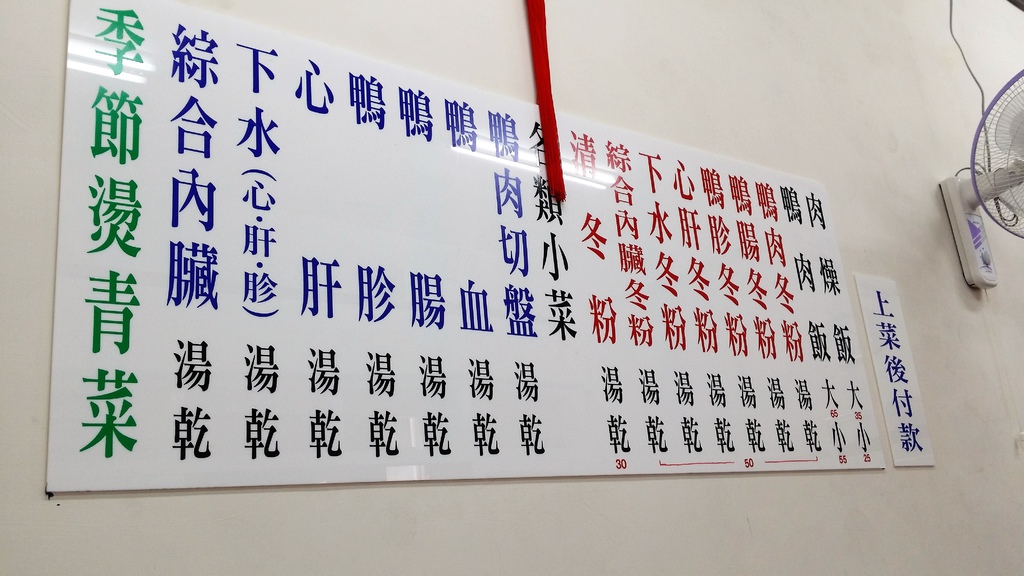 上菜後付款
肉燥飯 大35 小25
鴨肉飯 大65 小55
鴨肉冬粉 湯乾
鴨腸冬粉 湯乾
鴨胗冬粉 湯乾
心肝冬粉 湯乾
下水冬粉 湯乾
綜合內臟冬粉 湯乾
50
清冬粉 湯乾 30
各類小菜
鴨肉切盤 湯乾
鴨血 湯乾
鴨腸 湯乾
鴨胗 湯乾
心肝 湯乾
下水(心·肝·胗) 湯乾
綜合內臟 湯乾
季節燙青菜